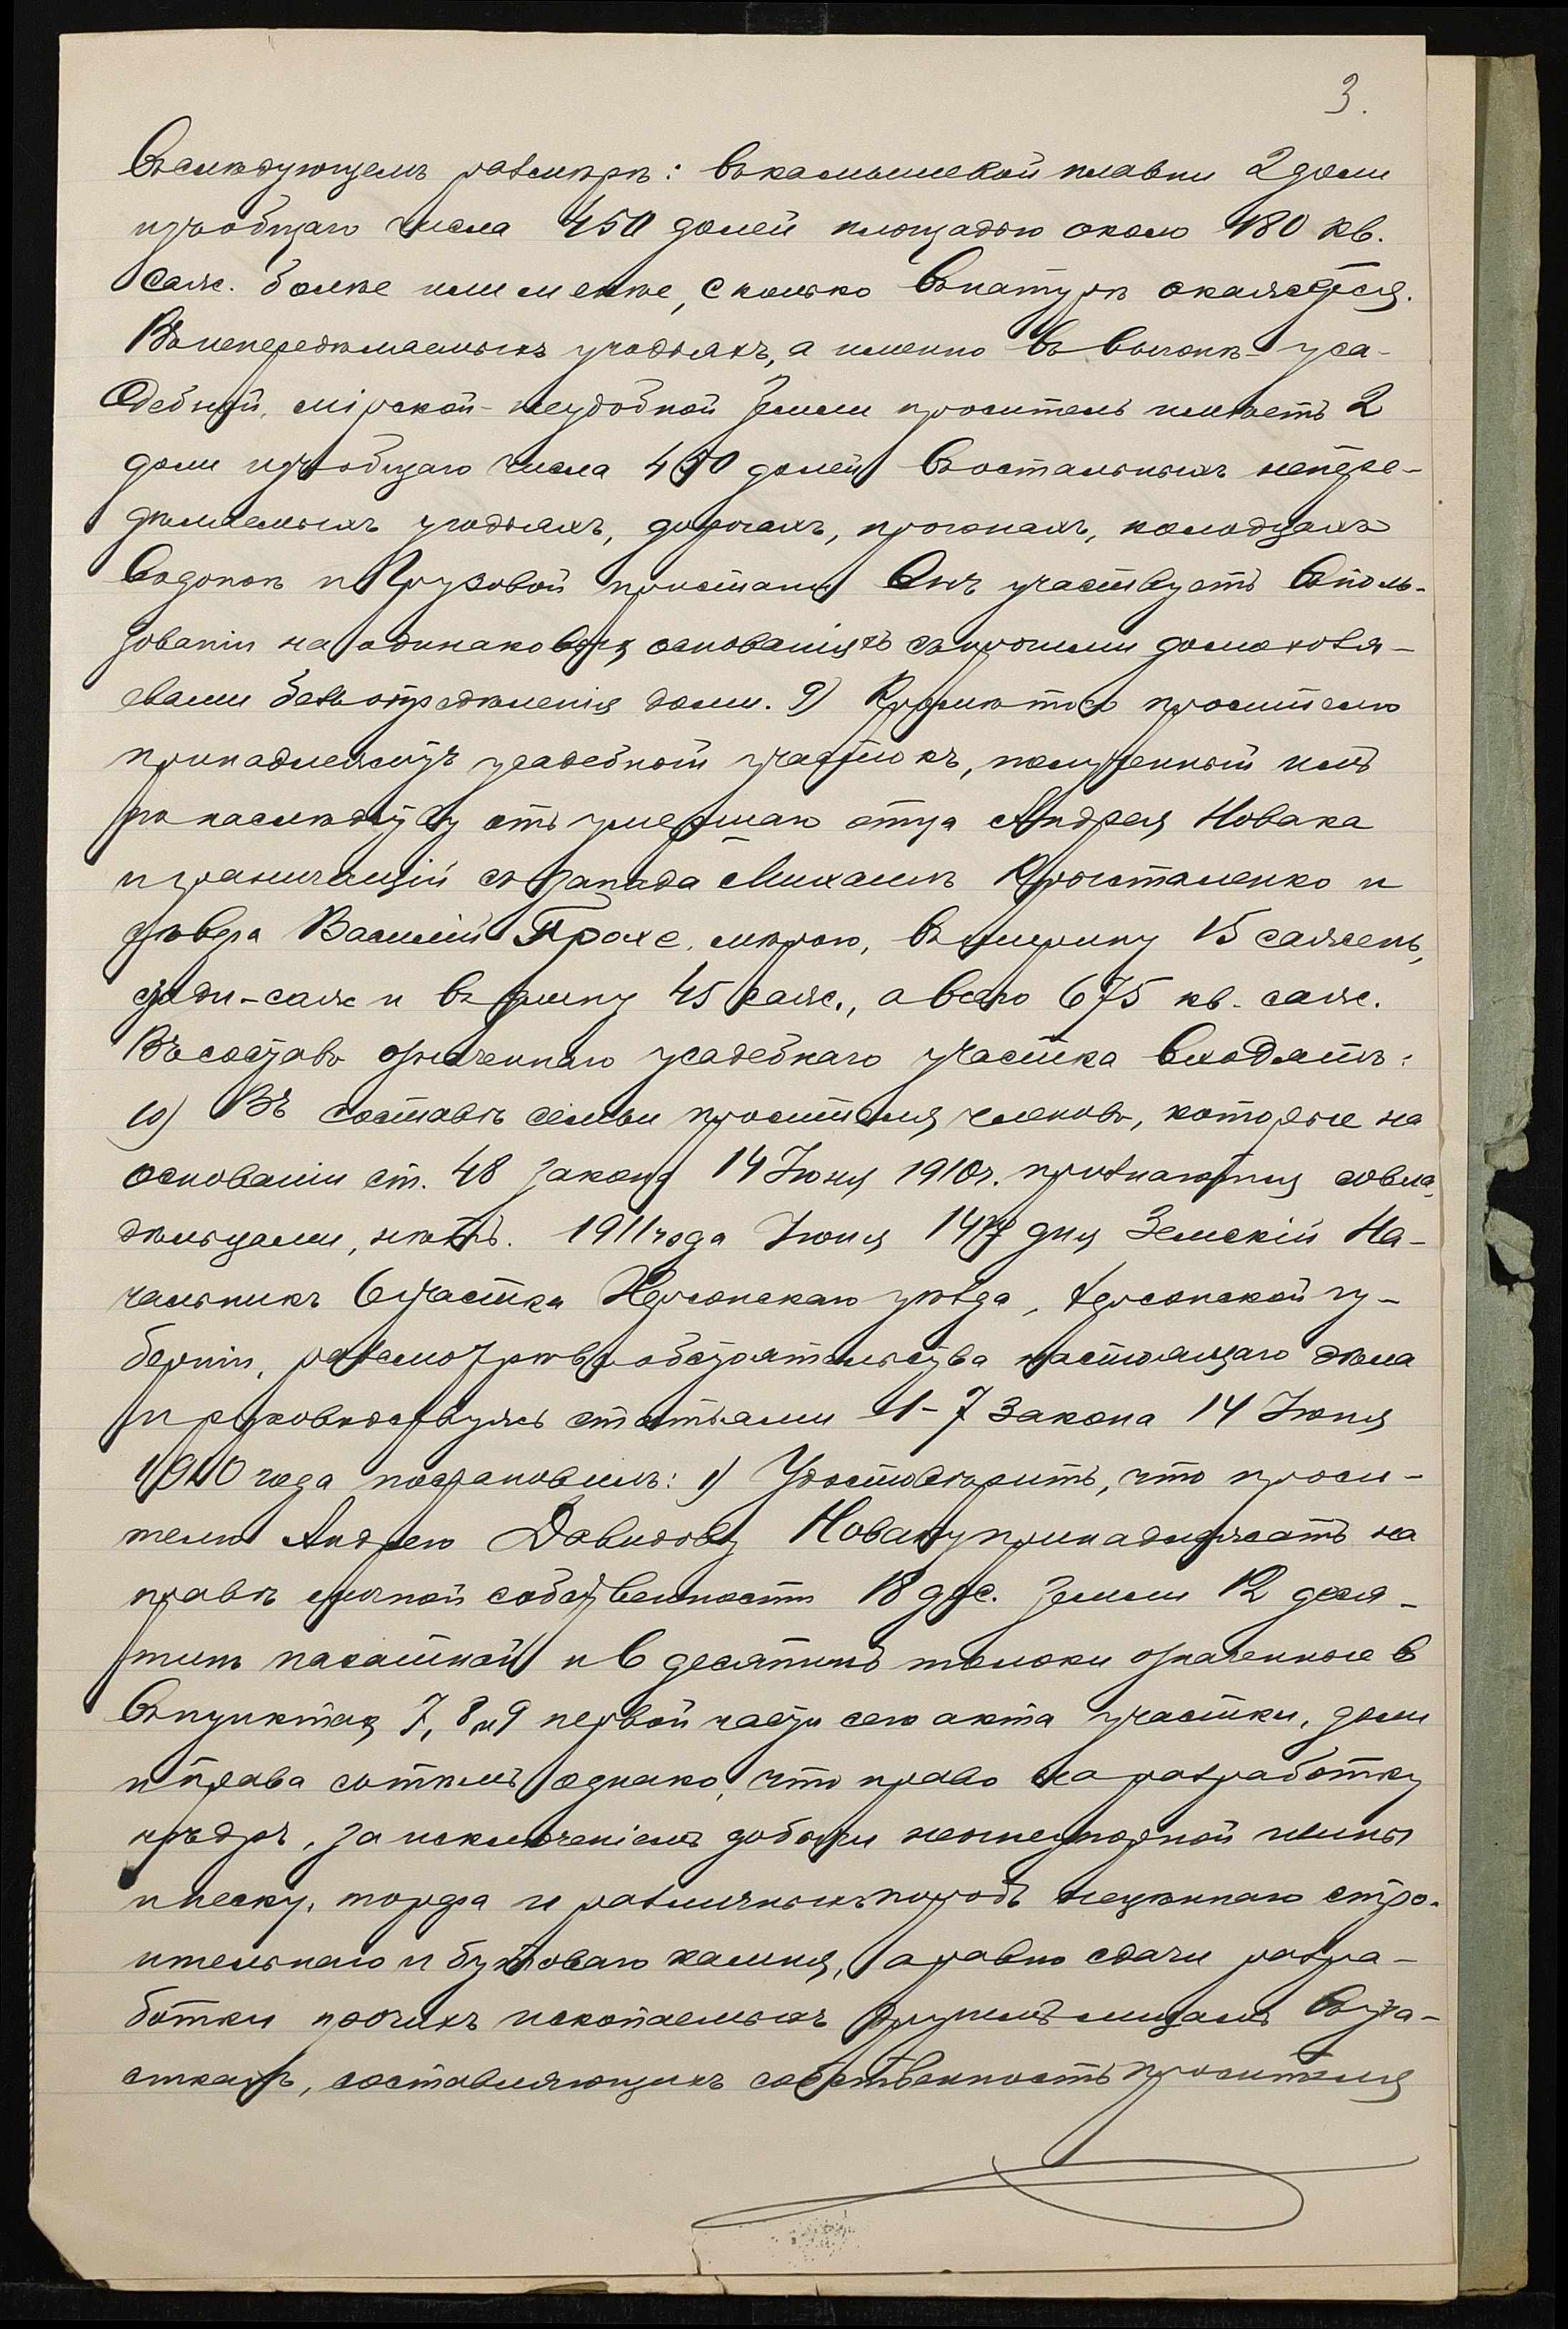 3.
Въ слѣдующемъ размѣрѣ: въ камышевой плавни 2 доли
изъ общаго числа 450 долей площадью около 480 кв.
саж. болѣе или менѣе, сколько въ натурѣ окажется.
Въ непередѣляемыхъ угодьяхъ, а именно въ выгонѣ- уса-
дебной, мірской- неудобной земли проситель имѣетъ 2
доли изъ общаго числа 450 долей въ остальныхъ непере-
дѣляемыхъ угодьяхъ, дорогахъ, прогонахъ, колодцахъ
водопоѣ и Грузовой пристани Онъ участвуетъ въ поль-
зованіи на одинаковыхъ основаніяхъ съ прочими домохозя-
евами безъ опредѣленія доли. 9) Кромѣ того просителю
принадлежитъ усадебный участокъ, полученный имъ
по наслѣдству отъ умершаго отца Андрея Новака
и граничащій съ запада Михаилъ Кристаленко и
сѣвера Василій Проже, мѣрою, въ ширину 15 сажень,
сзади-саж и въ длину 45 саж., а всего 675 кв. саж.
Въ составъ означеннаго усадебнаго участка входятъ:
10) Въ составѣ семьи просителя членовъ, которые на
основаніи ст. 48 закона 14 Іюня 1910 г. признаются совла-
дѣльцами, нѣтъ. 1911 года Іюня 14 дня Земскій На-
чальникъ 6 участка Херсонскаго уѣзда, Херсонской гу-
берніи, разсмотрѣвъ обстоятельства настоящаго дѣла
и руководствуясь статьями 1-7 Закона 14 Іюня
1910 года постановилъ: 1) Удостовѣрить, что проси-
телю Андрею Давидову Новаку принадлежатъ на
правѣ личной собственности 18 дес. земли 12 деся-
тинъ пахатной и 6 десятинъ толоки означенные в
въ пунктахъ 7, 8 и 9 первой части сего акта участки, доли
и права съ тѣмъ однако, что право на разработку
нѣдръ, за исключеніемъ добычи неогнеупорной глины
и песку, торфа и различныхъ породъ нецѣннаго стро-
ительнаго и бутоваго камня, а равно сдачи разра-
ботки прочихъ ископаемыхъ другимъ лицамъ въ уча-
сткахъ, составляющихъ собственность просителя